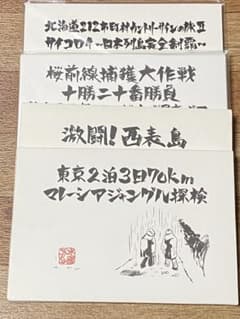 北海道212市町村カントリーサインの旅Ⅱ
サイコロ6 〜日本列島完全制覇〜
桜前線捕獲大作戦
十勝二十番勝負
激闘!西表島
東京2泊3日70km
マレーシアジャングル探検